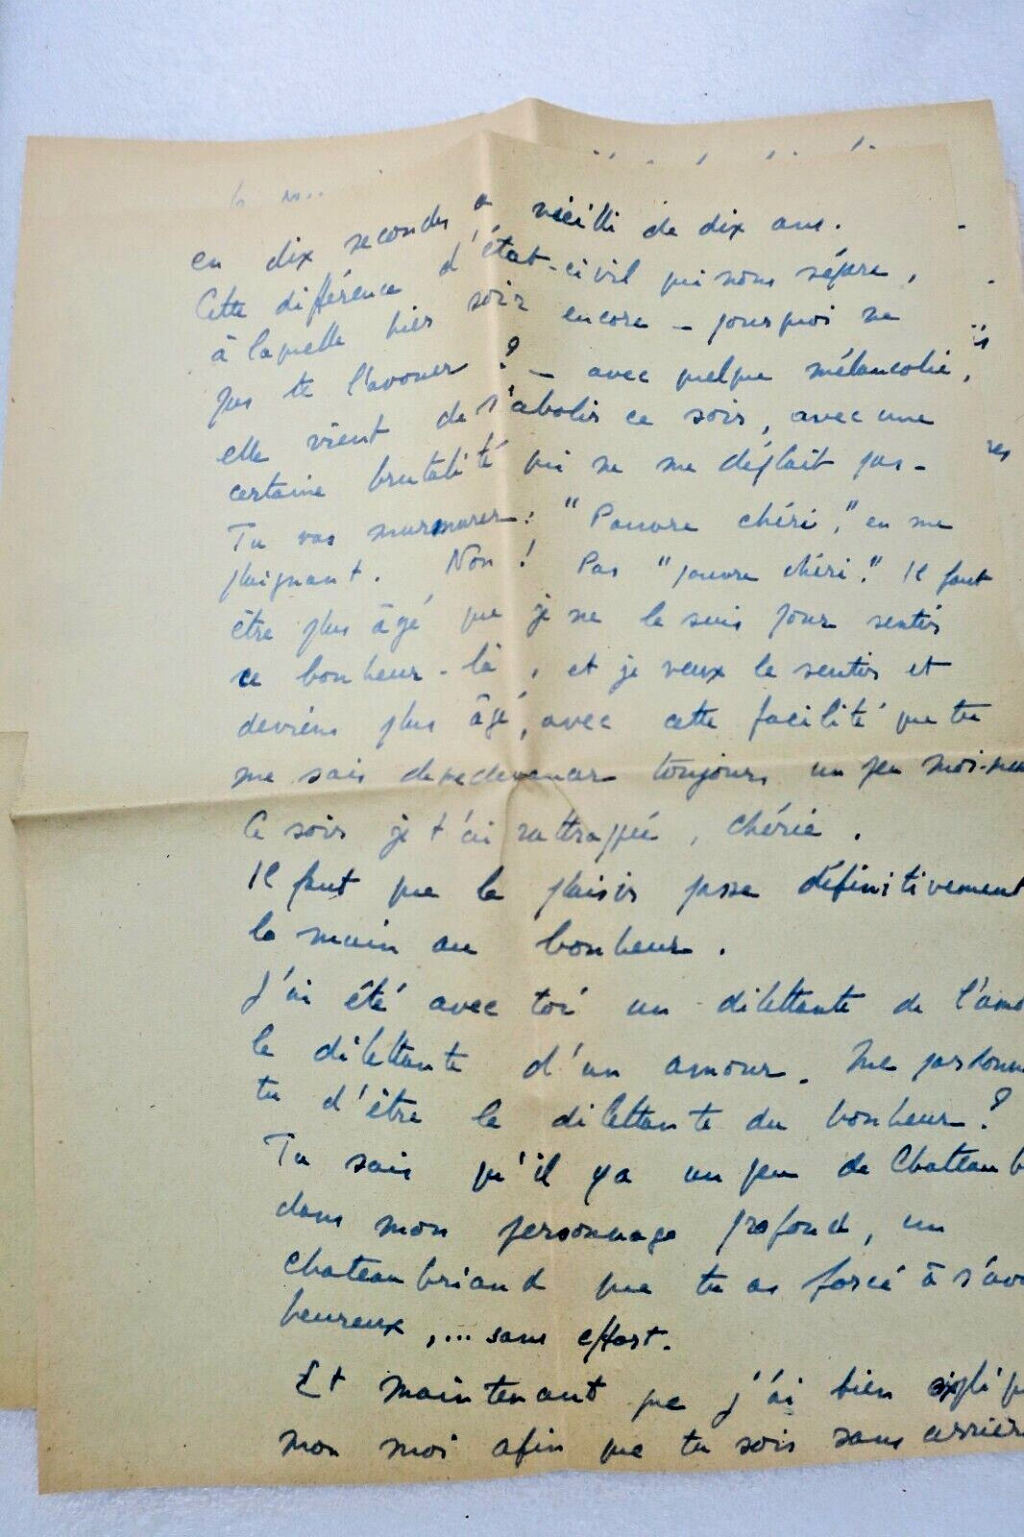 en dix secondes a vieilli de dix ans.
Cette différence d'état-civil qui nous sépare,
à laquelle hier soir encore – pourquoi ne
pas te l'avouer ? – avec quelque mélancolie,
elle vient de s'abolir ce soir, avec une
certaine brutalité qui ne me déplait pas –
Tu vas murmurer : "Pauvre chéri," en me
plaignant. Non ! Pas "pauvre chéri." Il faut
être plus âgé que je ne le suis pour sentir
ce bonheur-là, et je veux le sentir et
deviens plus âgé, avec cette facilité que tu
me sais de redevenir toujours un peu moi-
Ce soir je t'ai rattrapée, chérie.
Il faut que le plaisir passe définitivement
la main au bonheur.
J'ai été avec toi un dilettante de
le dilettante d'un amour. Me
tu d'être le dilettante du bonheur ?
Tu sais qu'il y a un peu de
dans mon personnage profond, un
Chateaubriand que tu as forcé à
heureux,... sans effort.
Et maintenant que j'ai bien
mon moi afin que tu sois sans